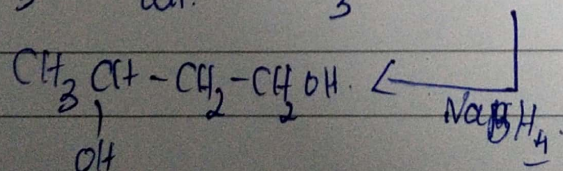 CH₃CH-CH₂-CH₂OH. ←
NaBH₄.
OH